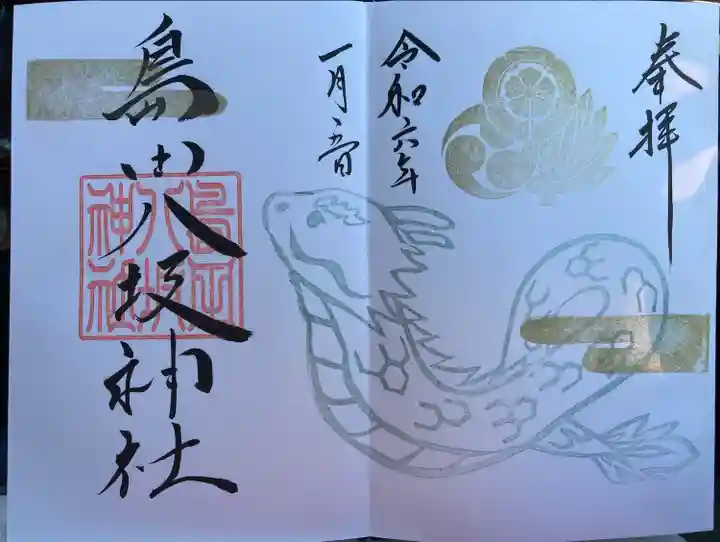 奉拝
令和六年
一月
島田八坂神社
島田
八坂
神社